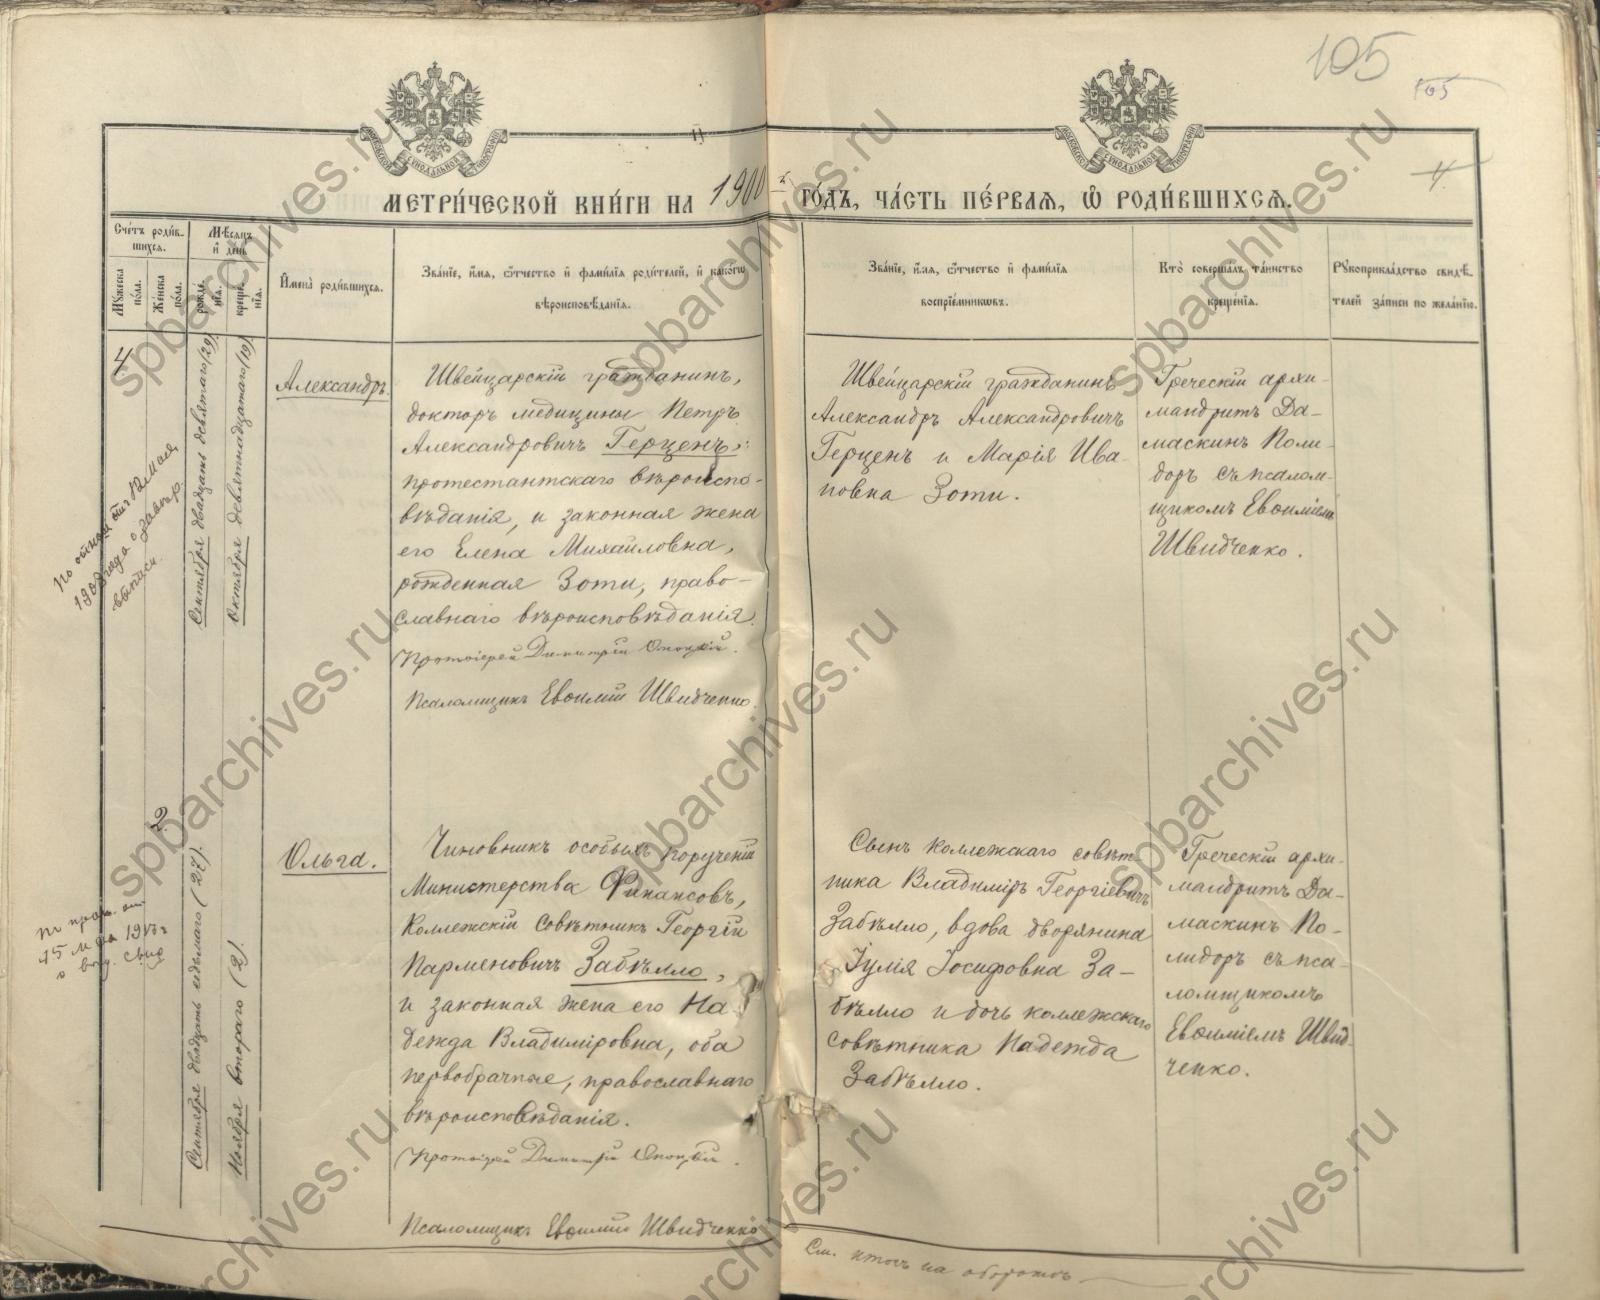 105
105
4.
МЕТРИ́ЧЕСКОЙ КНИ́ГИ НА 1900 й ГО́ДЪ, ЧА́СТЬ ПЕ́РВАѦ, Ѡ҆ РОДИ́ВШИХСѦ.
Сче́тъ роди́в-
шихсѧ.
Мꙋ́жеска по́ла.
Же́нска по́ла.
Мѣ́сѧцъ и҆ де́нь
рожде́нїѧ.
креще́нїѧ.
И҆мена̀ роди́вшихсѧ.
Зва́нїе, и҆́мѧ, ѻ҆́тчество и҆ фами́лїѧ роди́телей, и҆ како́гѡ
вѣроисповѣ́данїѧ.
Зва́нїе, и҆́мѧ, ѻ҆́тчество и҆ фами́лїѧ
воспрїе́мникѡвъ.
Кто̀ соверша́лъ та́инство
креще́нїѧ.
Рꙋкоприкла́дство свидѣ́-
телей за́писи по жела́нїю.
4.
Сентября двадцать девятаго (29)
Октября девятнадцатаго (19)
Александръ.
Швейцарскій гражданинъ,
докторъ медицины Петръ
Александровичъ Герценъ,
протестантскаго вѣроиспо-
вѣданія, и законная жена
его Елена Михайловна,
рожденная Зоти, право-
славнаго вѣроисповѣданія.
Протоіерей Димитрій
Псаломщикъ Евѳимій Швидченко.
Швейцарскій гражданинъ
Александръ Александровичъ
Герценъ и Марія Ива-
новна Зоти.
Греческій архи-
мандритъ Да-
маскинъ Поли-
доръ съ псалом-
щикомъ Евѳиміемъ
Швидченко.
2.
Сентября двадцать седьмаго (27).
Ноября втораго (2).
Ольга.
Чиновникъ особыхъ порученій
Министерства Финансовъ,
Коллежскій совѣтникъ Георгій
Парменовичъ Забѣлло,
и законная жена его На-
дежда Владиміровна, оба
первобрачные, православнаго
вѣроисповѣданія.
Протоіерей Димитрій
Псаломщикъ Евѳимій Швидченко
Сынъ коллежскаго совѣт-
ника Владиміръ Георгіевичъ
Забѣлло, вдова дворянина
Іулія Іосифовна За-
бѣлло и дочь коллежскаго
совѣтника Надежда
Забѣлло.
Греческій архи-
мандритъ Да-
маскинъ По-
лидоръ съ пса-
ломщикомъ
Евѳиміемъ Швид-
ченко.
См. итогъ на оборотѣ
spbarchives.ru